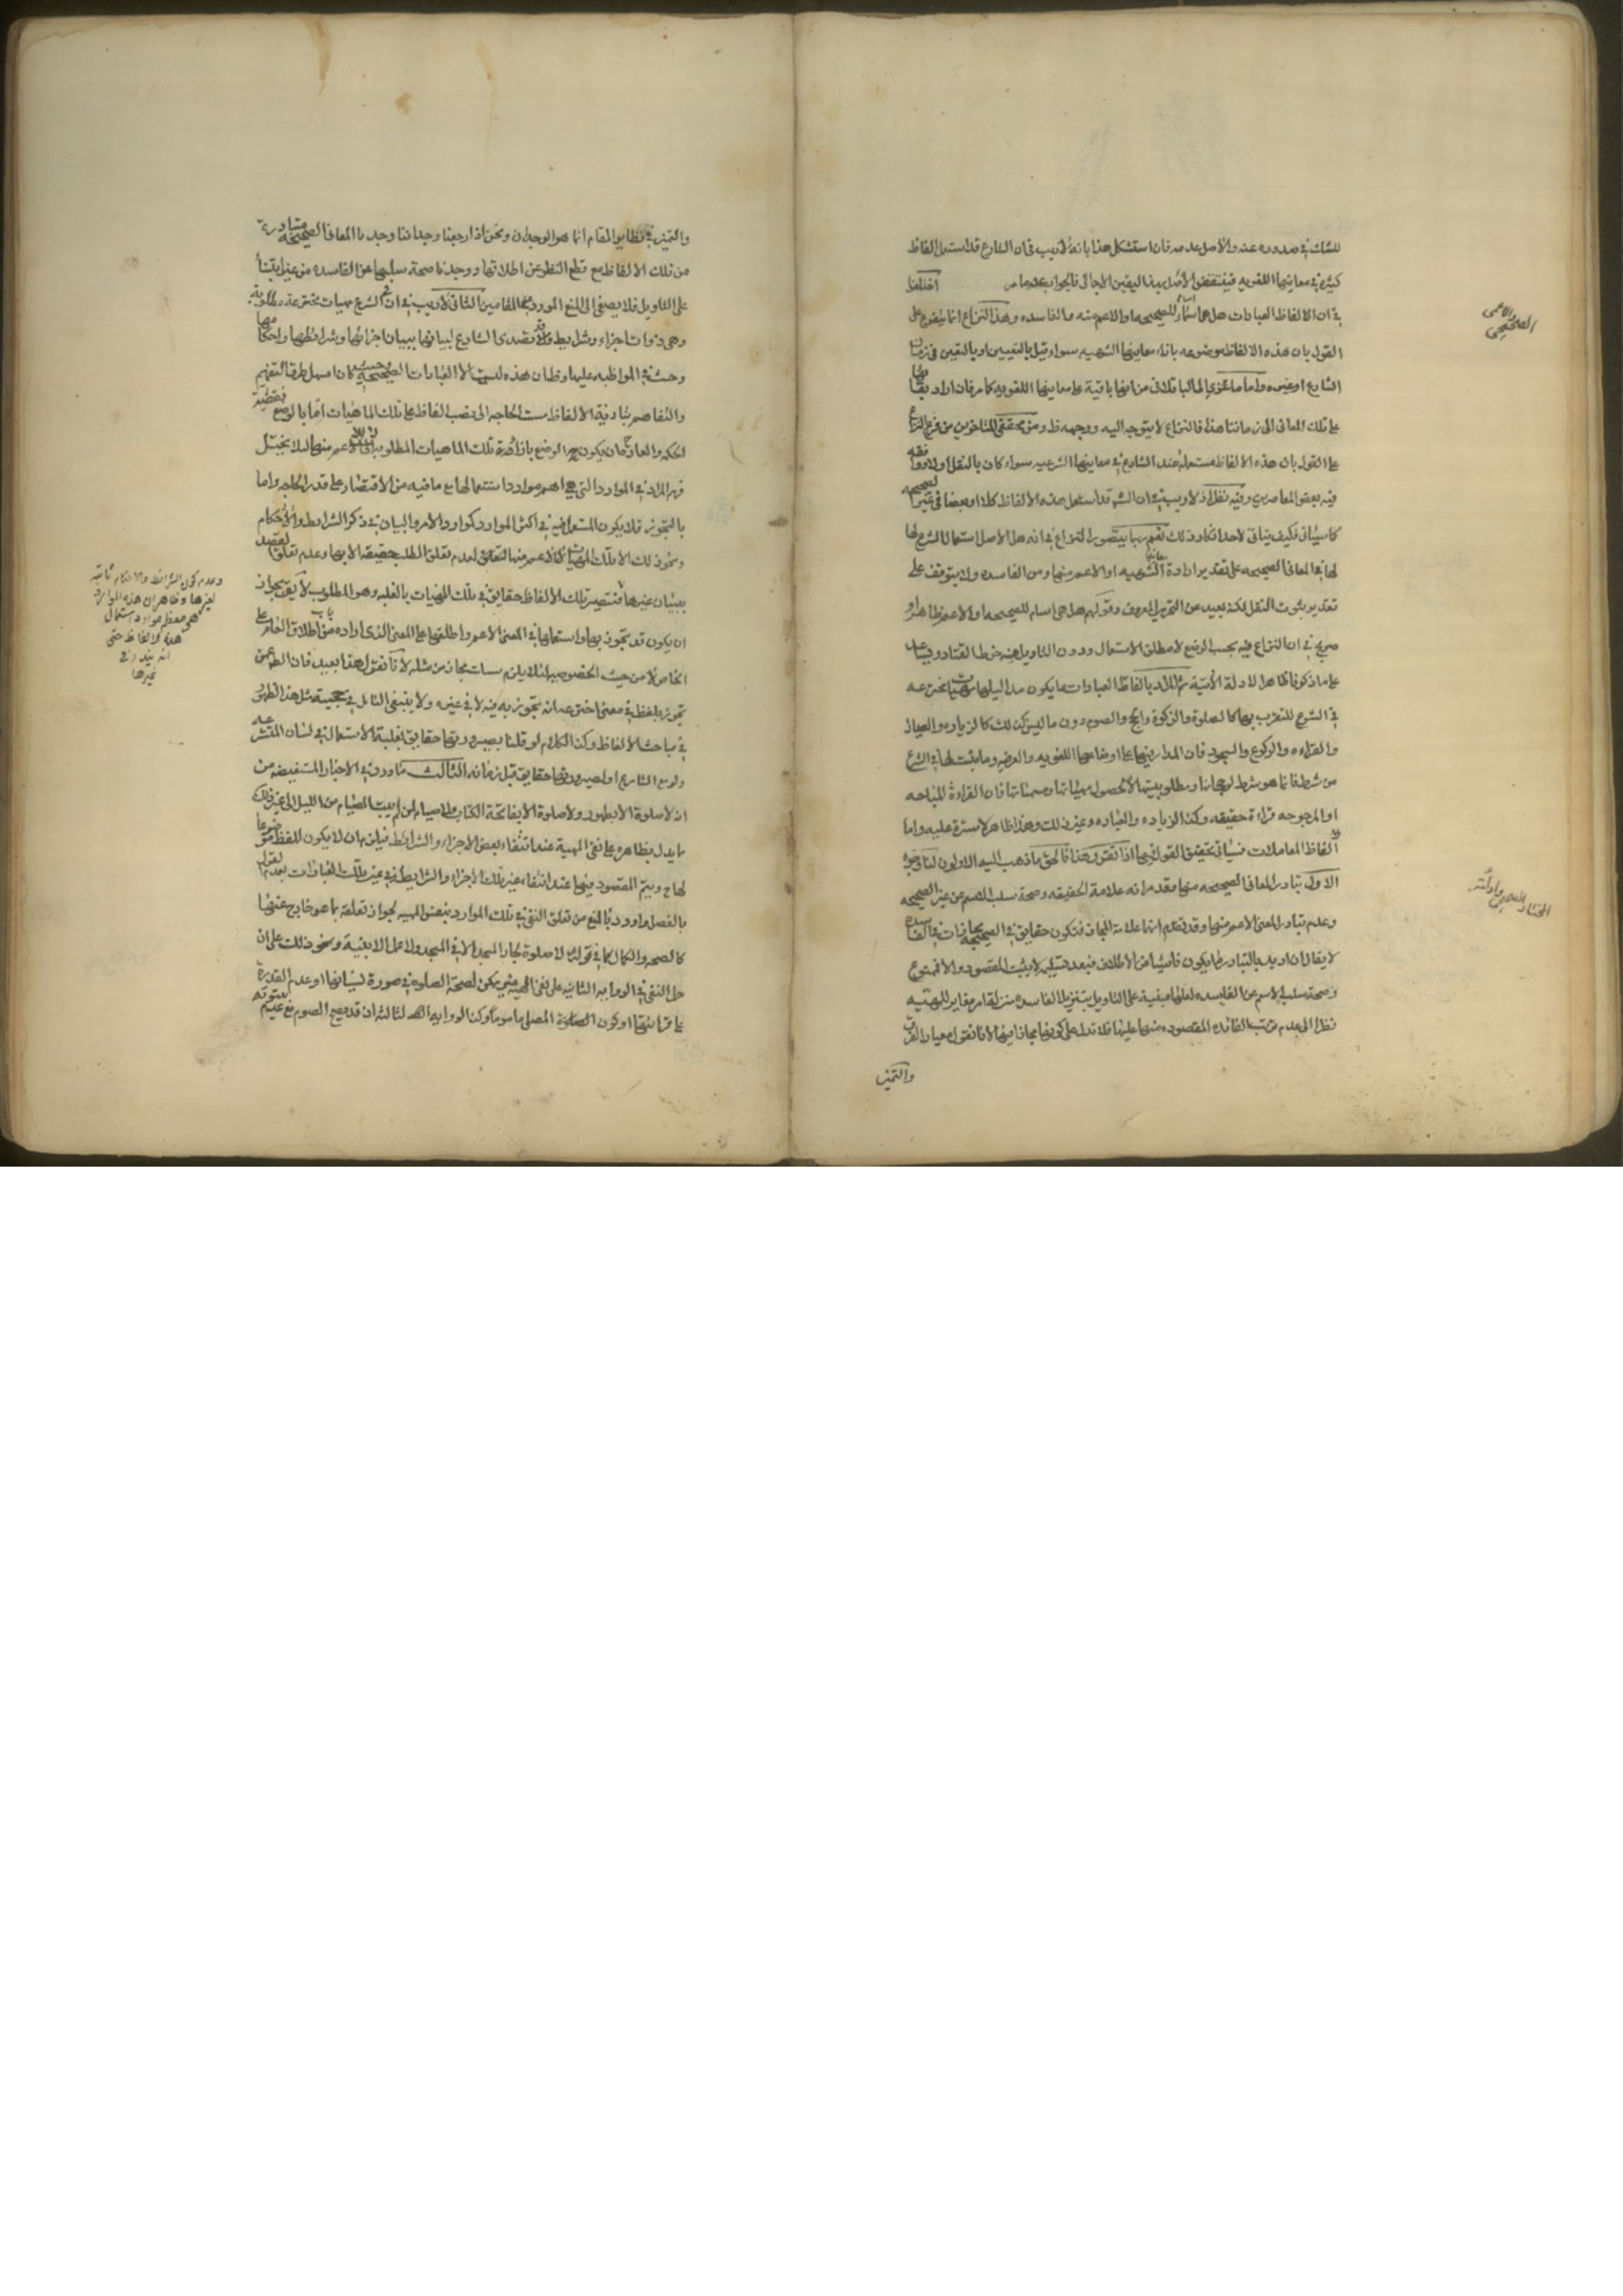 للشك في صدوره عنه والاصل عدمه فان استشكل هذا بانه لا ريب في ان الشارع قد استعمل الفاظا
كثيرة في معانيها اللغويه فينتقض الاصل بهذا اليقين الاجمالي فالجواب عنه ما مر اختلفوا
في ان الالفاظ العبادات هل هي اسماء للصحيحه او الاعم منه والفاسده وهذا النزاع انما يتفرع على
القول بان هذه الالفاظ موضوعه بازاء معانيها الشرعيه سواء قيل بالتعيين او بالتعين في زمان
الشارع او غيره واما ما عزي الى الباقلاني من انها باقية على معانيها اللغويه كما مر فان اراد بقائها
على تلك المعاني الى زماننا هذا فالنزاع لا يتوجه اليه ووجهه ظ ومن محققي المتاخرين من فرع النزاع
على القول بان هذه الالفاظ مستعمله عند الشارع في معانيها الشرعيه سواء كان بالنقل اولا ووافقه
فيه بعض المعاصرين وفيه نظر اذ لا ريب في ان الشرع قد استعمل هذه الالفاظ كلا او بعضا في غير الصحيحه
كما سياتي فكيف يتاتى لاحد انكار ذلك نعم ربما يتصور النزاع في انه هل الاصل استعمال الشرع لها
لها في المعاني الصحيحه على تقدير ارادة معانيها الشرعيه او الاعم منها ومن الفاسده ولا يتوقف على
تقدير ثبوت النقل لكنه بعيد عن التحرير المعروف وقولهم هل هي اسام للصحيحه او الاعم ظاهر او
صريح في ان النزاع فيه بحسب الوضع لا مطلق الاستعمال ودون التاويل فيه خرط القتاد ويساعد
على ما ذكرنا ظاهر الادلة الآتية ثم المراد بالفاظ العبادات ما يكون مداليلها مهيات مخترعه
في الشرع للتقرب بها كالصلوة والزكوة والحج والصوم دون ما ليس كذلك كالزياره والعياده
والقراءه والركوع والسجود فان المدار فيها على اوضاعها اللغويه والعرفيه وما يثبت لها في الشرع
من شرط فانما هو شرط لرجحانها ومطلوبيتها لا لحصول مهياتها ومسمياتها فان القراءة المباحه
او المرجوحه قراءة حقيقه وكذا الزياده والعياده وغير ذلك وهذا ظاهر لا سترة عليه واما
الفاظ المعاملات فسياتي تحقيق القول فيها اذا تقرر هذا فالحق ما ذهب اليه الاولون لنا وجوه
الاول تبادر المعاني الصحيحه منها وقد مر انه علامة الحقيقه وصحة سلب الاسم عن غير الصحيحه
وعدم تبادر المعنى الاعم منها وقد تقدم انها علامة المجاز فتكون حقايق في الصحيحه مجازات في الفاسده
لا يقال ان اريد بالتبادر ما يكون ناشيا من الاطلاق فبعد تسليمه لا يثبت المقصود والا فممنوع
وصحة سلب الاسم عن الفاسده لعلها مبنية على التاويل بتنزيل الفاسده منزلة امر مغاير للمهيه
نظرا الى عدم ترتب الفائده المقصوده منها عليها فلا تدل على كونها مجازا فيها لانا نقول معيار الفرق
والتميز
الصحيحي والاعمي
المختار الصحيحي وادلته
والتميز في نظاير المقام انما هو الوجدان ونحن اذا رجعنا وجداننا وجدنا المعاني الصحيحه متبادرة
من تلك الالفاظ مع قطع النظر عن اطلاقها ووجدنا صحة سلبها عن الفاسده من غير ابتناء
على التاويل فلا يصغى الى المنع المورد في المقامين الثاني لا ريب في ان في الشرع مهيات مخترعة مطلوبة
وهي ذوات اجزاء وشرايط وقد تصدى الشارع لبيانها ببيان اجزائها وشرائطها واحكامها
وحث في المواظبه عليها وظ ان هذه ليست الا العبادات الصحيحه وحيث كان اسهل طرق التفهيم
والتفاهم بتادية الالفاظ مست الحاجه الى نصب الفاظ على تلك الماهيات اما بالوضع فقضية
الحكمه والعادة ان يكون الوضع بازاء تلك الماهيات المطلوبه لا الاعم منها لئلا يختل
فهم المراد في الموارد التي هي اهم موارد استعمالها مع ما فيه من الاقتصار على قدر الحاجه واما
بالتجوز فلا يكون المستعمل فيه في اكثر الموارد كموارد الامر والبيان في ذكر الشرايط والاحكام
ونحو ذلك الا تلك المهيات لا الاعم منها لعدم تعلق الطلب حقيقه الا بها وعدم تعلق القصد
ببيان غيرها فتصير تلك الالفاظ حقايق في تلك المهيات بالغلبه وهو المطلوب لا يقال يجوز
ان يكون قد تجوز بها واستعملها في المعنى الاعم واطلقها على المعنى الذي اراده من باب اطلاق العام على
الخاص لا من حيث الخصوصيه لئلا يلزم سبك مجاز من مثله لانا نقول هذا بعيد فان الظ ممن
تجوز بلفظ في معنى اختص عنه انه تجوز به فيه لا في غيره ولا ينبغي التامل في حجية مثل هذا الظهور
في مباحث الالفاظ وكذا الكلام لو قلنا بصيرورتها حقايق لغلبة الاستعمال في لسان المتشرعه
ولو مع الشارع او لصيرورتها حقايق قبل زمانه الثالث ما ورد في الاخبار المستفيضه من
انه لا صلوة الا بطهور ولا صلوة الا بفاتحة الكتاب ولا صيام لمن لم يبيت الصيام من الليل الى غير ذلك
مما يدل بظاهره على نفي المهية عند انتفاء بعض الاجزاء والشرائط فيلزم ان لا يكون اللفظ موضوعا
لها ح ويتم المقصود فيها عند انتفاء غير تلك الاجزاء والشرايط وفي غير تلك العبادات بعدم القول
بالفصل واورد بالمنع من تعلق النفي في تلك الموارد بنفس المهيه لجواز تعلقه بما هو خارج عنها
كالصحه والكمال كما في قوله لا صلوة لجار المسجد الا في المسجد ولا عمل الا بنية ونحو ذلك على ان
حمل النفي في الروايه الثانيه على نفي المهية غير ممكن لصحة الصلوة في صورة نسيانها او عدم القدرة
على قرائتها او كون المصلي ماموما وكذا الروايه الثالثه اذ قد يصح الصوم مع عدم
وعدم كون الشرائط والاحكام ثابتة
لغيرها وظاهر ان هذه الموارد
هي معظم موارد استعمال
هذه الالفاظ حتى
انه يندر في
غيرها